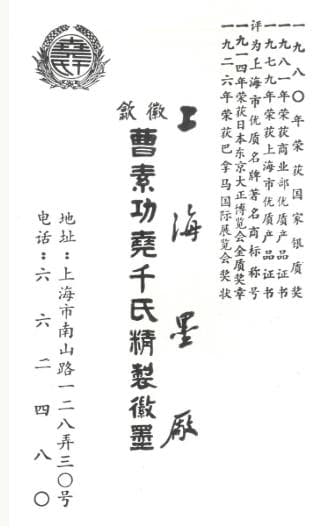 一九八〇年荣获国家银质奖
一九八一年荣获商业部优质产品证书
一九七九年荣获上海市优质产品证书
评为上海市优质名牌著名商标称号
一九一四年荣获日本东京大正博览会金质奖章
一九二六年荣获巴拿马国际展览会奖状
上海墨厰
徽歙
曹素功堯千氏精製徽墨
地址：上海市南山路一二八弄三〇号
电话：六六二四八〇
堯千氏